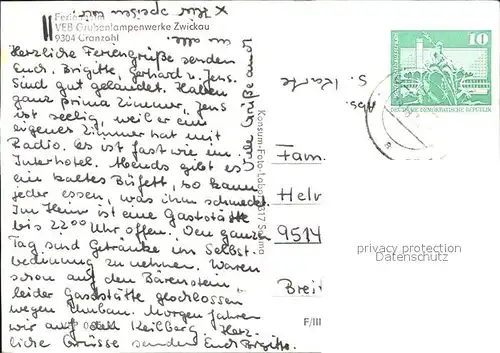 x Kur speisen wir.
um alle.
Ferienheim
VEB Grubenlampenwerke Zwickau
9304 Cranzahl
Herzliche Feriengrüße senden
Euch Brigitte, Gerhard u. Jens.
Sind gut gelandet. Haben
ganz prima Zimmer, Jens
ist seelig, weil er ein
eigenes Zimmer hat mit
Radio. Es ist fast wie im
Interhotel. Abends gibt es
ein kaltes Büfett, so kann
jeder essen, was ihm schmeckt.
Im Heim ist eine Gaststätte
bis 22 00 Uhr offen. Den ganzen
Tag sind Getränke in Selbst-
bedienung zu nehmen. Waren
schon auf den Bärenstein
leider Gaststätte geschlossen
wegen Umbau. Morgen fahren
wir auf den Keilberg. Herz-
liche Grüsse senden Euch Brigitte.
Viele Grüße auch
Konsum-Foto-Labor 9317 Sehma
Abs.
s. Karte
10
DEUTSCHE DEMOKRATISCHE REPUBLIK
Fam.
Helm
9514
Breit
privacy protection
Datenschutz
F/III